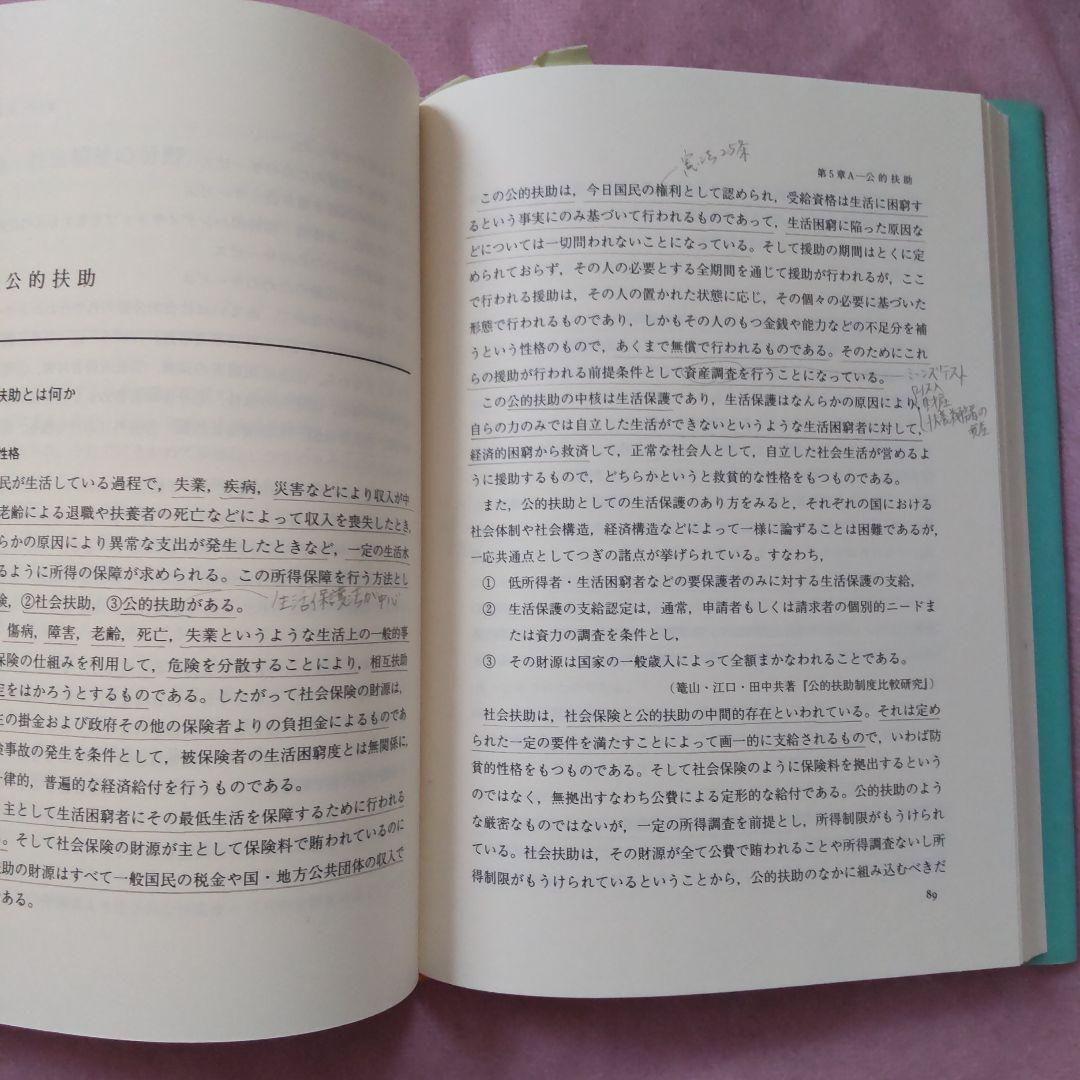 公的扶助
扶助とは何か
性格
民が生活している過程で，失業，疾病，災害などにより収入が中
老齢による退職や扶養者の死亡などによって収入を喪失したとき，
らかの原因により異常な支出が発生したときなど，一定の生活水
るように所得の保障が求められる。この所得保障を行う方法とし
険，②社会扶助，③公的扶助がある。
生活保護法が中心
傷病，障害，老齢，死亡，失業というような生活上の一般的事
保険の仕組みを利用して，危険を分散することにより，相互扶助
定をはかろうとするものである。したがって社会保険の財源は，
主の掛金および政府その他の保険者よりの負担金によるものであ
険事故の発生を条件として，被保険者の生活困窮度とは無関係に，
一律的，普遍的な経済給付を行うものである。
主として生活困窮者にその最低生活を保障するために行われる
。そして社会保険の財源が主として保険料で賄われているのに
扶助の財源はすべて一般国民の税金や国・地方公共団体の収入で
である。
憲法25条
第5章A―公的扶助
この公的扶助は，今日国民の権利として認められ，受給資格は生活に困窮す
るという事実にのみ基づいて行われるものであって，生活困窮に陥った原因な
どについては一切問われないことになっている。そして援助の期間はとくに定
められておらず，その人の必要とする全期間を通じて援助が行われるが，ここ
で行われる援助は，その人の置かれた状態に応じ，その個々の必要に基づいた
形態で行われるものであり，しかもその人のもつ金銭や能力などの不足分を補
うという性格のもので，あくまで無償で行われるものである。そのためにこれ
らの援助が行われる前提条件として資産調査を行うことになっている。
ミーンズテスト
この公的扶助の中核は生活保護であり，生活保護はなんらかの原因により，
自らの力のみでは自立した生活ができないというような生活困窮者に対して，
経済的困窮から救済して，正常な社会人として，自立した社会生活が営めるよ
うに援助するもので，どちらかというと救貧的な性格をもつものである。
また，公的扶助としての生活保護のあり方をみると，それぞれの国における
社会体制や社会構造，経済構造などによって一様に論ずることは困難であるが，
一応共通点としてつぎの諸点が挙げられている。すなわち，
① 低所得者・生活困窮者などの要保護者のみに対する生活保護の支給，
② 生活保護の支給認定は，通常，申請者もしくは請求者の個別的ニードま
たは資力の調査を条件とし，
③ その財源は国家の一般歳入によって全額まかなわれることである。
（篭山・江口・田中共著『公的扶助制度比較研究』）
社会扶助は，社会保険と公的扶助の中間的存在といわれている。それは定め
られた一定の要件を満たすことによって画一的に支給されるもので，いわば防
貧的性格をもつものである。そして社会保険のように保険料を拠出するという
のではなく，無拠出すなわち公費による定形的な給付である。公的扶助のよう
な厳密なものではないが，一定の所得調査を前提とし，所得制限がもうけられ
ている。社会扶助は，その財源が全て公費で賄われることや所得調査ないし所
得制限がもうけられているということから，公的扶助のなかに組み込むべきだ
89